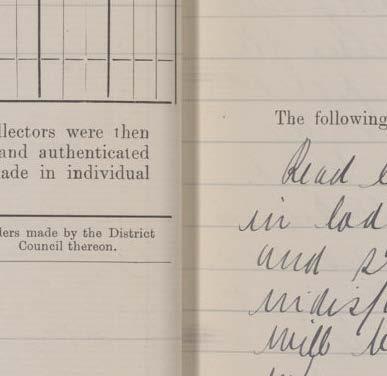 llectors were then
and authenticated
ade in individual
ders made by the District
Council thereon.
The following
Read
in lod
and
will